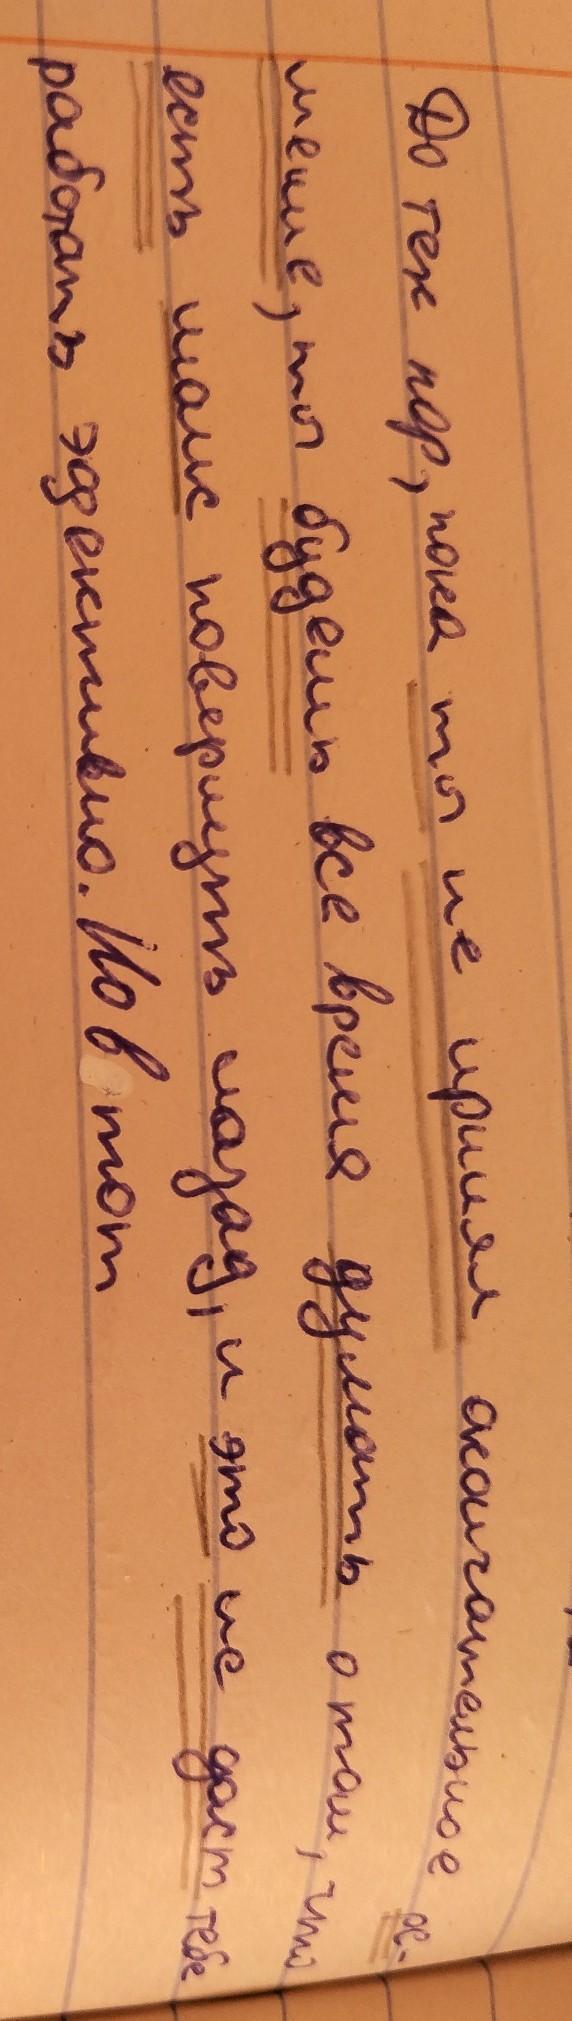 До тех пор, пока ты не принял окончательное ре-
шение, ты будешь все время думать о том, что
есть шанс повернуть назад, и это не даст тебе
работать эффективно. Но в тот